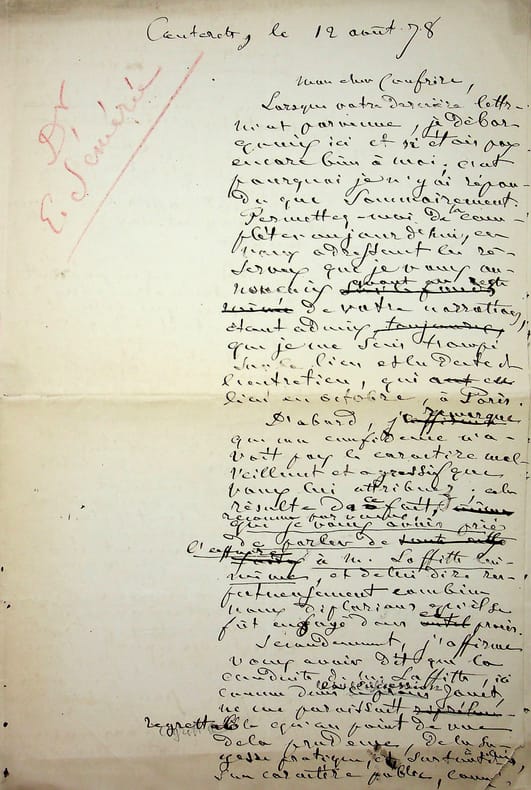 Cauterets, le 12 août 78
Dr
E. Sémérie
Mon cher Confrère,
Lorsque votre dernière lettre
m'est parvenue, je débar-
quais ici et n'étais pas
encore bien à moi, c'est
pourquoi je n'y ai répon-
du que sommairement.
Permettez-moi de la com-
pléter aujourd'hui, en
vous adressant les ré-
serves que je vous an-
nonçais quant au reste
de votre narration,
étant admis, toujours,
que je me sois trompé
sur le lieu et la date de
l'entretien, qui eut
lieu en octobre, à Paris.
D'abord, j'affirme remarque
que ma confidence n'a-
vait pas le caractère mal-
veillant et agressif que
vous lui attribuez. cela
résulte de ce fait,
reconnu par vous,
que je vous avais prié
de parler de
l'affaire à M. Laffitte lui-
même, et de lui dire res-
pectueusement combien
nous déplorions qu'il se
fût engagé dans cette
Secondement, j'affirme
vous avoir dit que la
conduite de M. Laffitte, ici
comme dans
ne me paraissait
regrettable qu'au point de vue
de la prudence, de la sa-
gesse pratique, et surtout de
son caractère public, comme